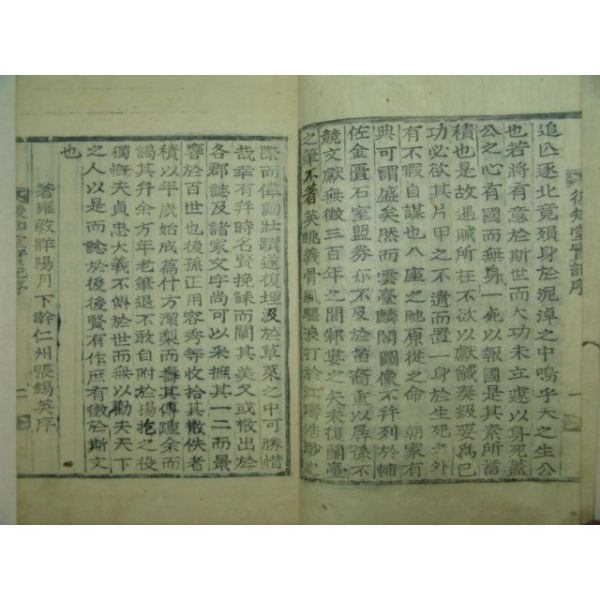 追亡逐北竟殞身於泥淖之中嗚乎天之生公
也若將有意於斯世而大功未立遽以身死蓋
公之心有國而無身一死以報國是其素所蓄
積也是故遇賊所在不欲以獻馘奏級要爲己
功必欲其片甲之不遺而置一身於生死之外
有不暇自謀也八座之貤原從之命朝家有
典可謂盛矣然而雲臺麟閣圖像不幷列於輔
佐金匱石室盟券亦不及於苗裔重以孱孫不
競文獻無徵三百年之間邪寇之矢未復蘭臺
之筆不著英眺義骨風驅浪打於江濤浩渺之
後知堂實記序
一
際而偉勳壯蹟遂復埋及於草萊之中可勝惜
哉幸有幷時名賢挽誄而闡其美又或散出於
各郡誌及諸家文字尚可以采摭其一二而景
響於百世也後孫正用容秀等收拾其散佚者
積以年歲始成篇什方潔梨而壽其傳踵余而
謁其弁余方年老筆退不敢自附於揚抱之役
獨慨夫貞忠大義不鮮於世而無以勸夫天下
之人以是而諗於後後賢有作庶有徵於斯文
也
著雍敦牂陽月下澣仁州張錫英序
後知堂實記序
二